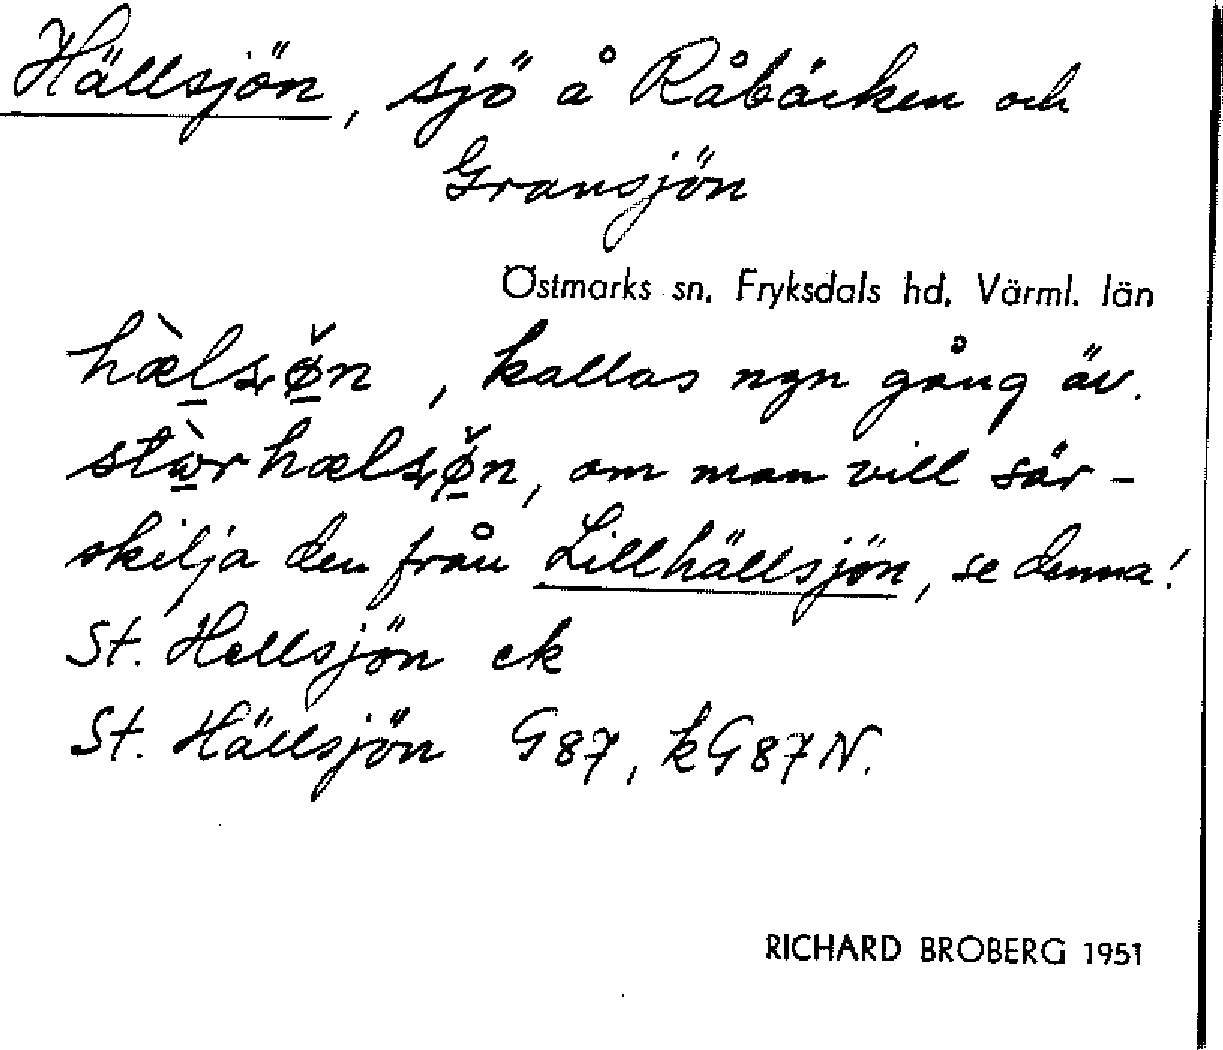 Hällsjön, sjö å Råbäcken och
Gransjön
Östmarks sn. Fryksdals hd. Värml. län
hæ̀l̲sø̲̌n, kallas ngn gång äv.
stὼ̲rhælsø̲̌n, om man vill sär-
skilja den från Lillhällsjön, se denna!
St. Hellsjön ek
St. Hällsjön G87, kG87N.
RICHARD BROBERG 1951